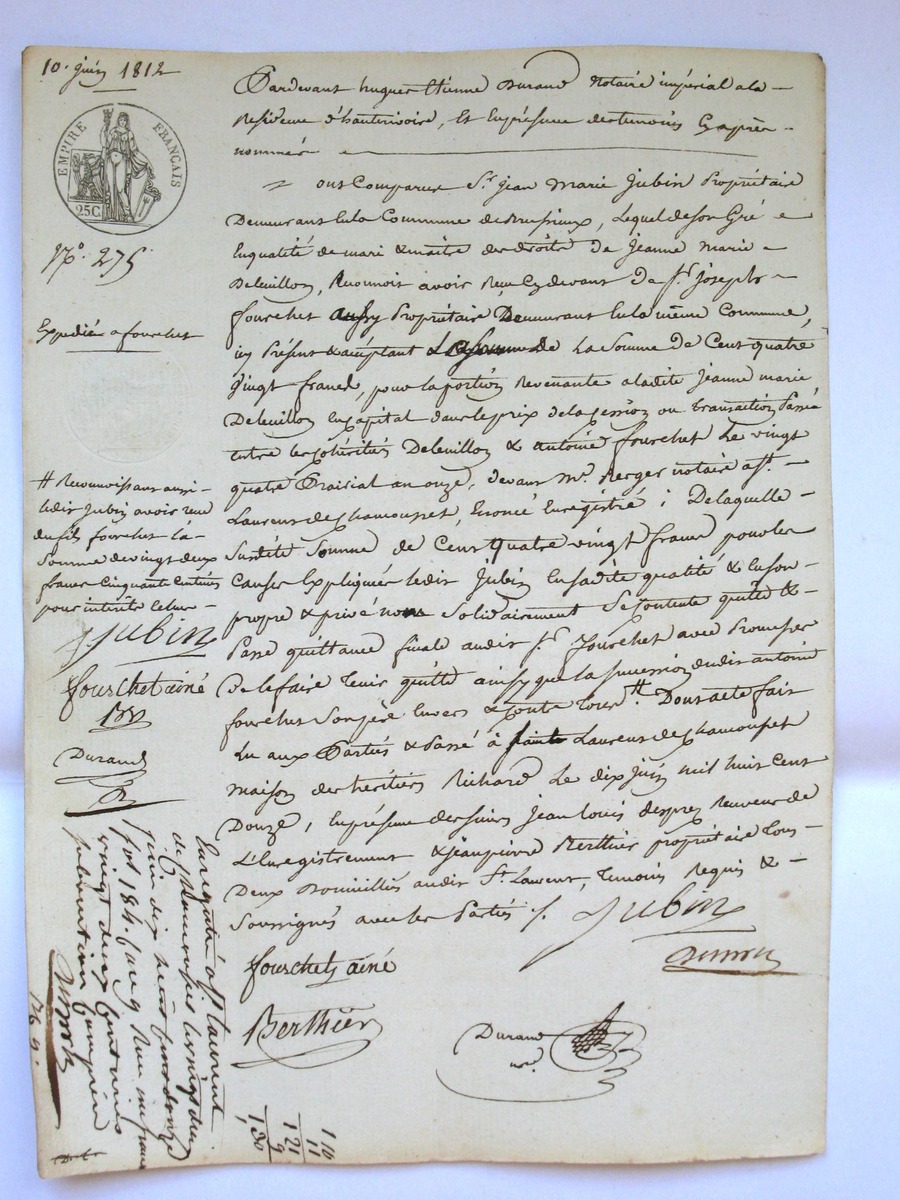 10. juin 1812
EMPIRE FRANÇAIS
25C.
N.º 275
Expedié a fourchet
# Reconnoissant aussi
ledit Jubin avoir reçu
dudit fourchet la
Somme de vingt deux
francs Cinquante Centimes
pour intérêts
Jubin
fourchet ainé
Durand
Pardevant hugues Etienne Durand Notaire impérial a la
Residence d'hauterivoire, Et En présence des temoins Cy après
nommés
ont Comparu S.r jean Marie Jubin Propriétaire
Demeurant En la Commune de Brussieux, lequel de son Gré
En qualité de mari & maitre des droits de Jeanne Marie
Deleuillon, Reconnoit avoir Reçu Cy devant De S.r Joseph
fourchet aussy Propriétaire Demeurant En la même Commune,
icy Présent & acceptant La Somme De Cent quatre
Vingt francs, pour la portion Revenante a ladite Jeanne marie
Deleuillon En Capital dans le prix de la Cession ou transaction Passé
Entre les Cohéritiés Deleuillon & antoine fourchet Le vingt
quatre Prairial an onze, devant M.e Berger notaire a S.t
Laurent de Chamousset, Enoncé Enregistré ; De laquelle
Susdite Somme De Cent Quatre vingt francs pour les
Causes Expliquées ledit Jubin En sadite qualité & En son
propre & privé nom Solidairement Se Contente quitte &
Passe quittance finale audit S.r Fourchet avec Promesse
De le faire Tenir quitte ainsy que la Succession dudit antoine
fourchet Son père Envers & Contre tous #. Dont acte fait
Lu aux Partiés & Passé à Saint Laurent de Chamousset
maison des héritiers Richard Le dix Juin mil huit Cent
Douze, En présence des sieurs Jean Louis despres Receveur de
L'Enregistrement & Jean pierre Berthier propriétaire Tous
Deux Domiciliés audit S.t Laurent, Temoins Requis &
Soussignés avec les Partiés
Jubin
fourchet ainé
Berthier
Durand
n.re
Enregistré a S.t Laurent
de Chamousset le vingt deux
juin dix huit Cent douze
f.o 184. Reçu un franc
vingt deux Centimes
subvention Comprise
176 9.
110
11
121
9
130